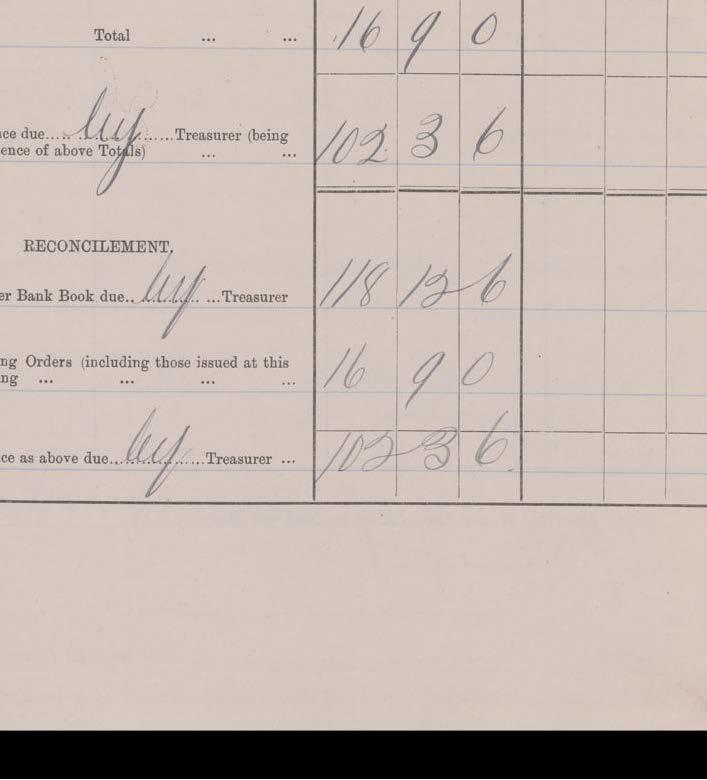 Total ... ... 16 9 0
ce due..... by ......Treasurer (being
ence of above Totals) ... ... 102 3 6
RECONCILEMENT.
er Bank Book due.. by ...Treasurer 118 12 6
ng Orders (including those issued at this
ng ... ... ... ... 16 9 0
ce as above due.. by ......Treasurer ... 102 3 6